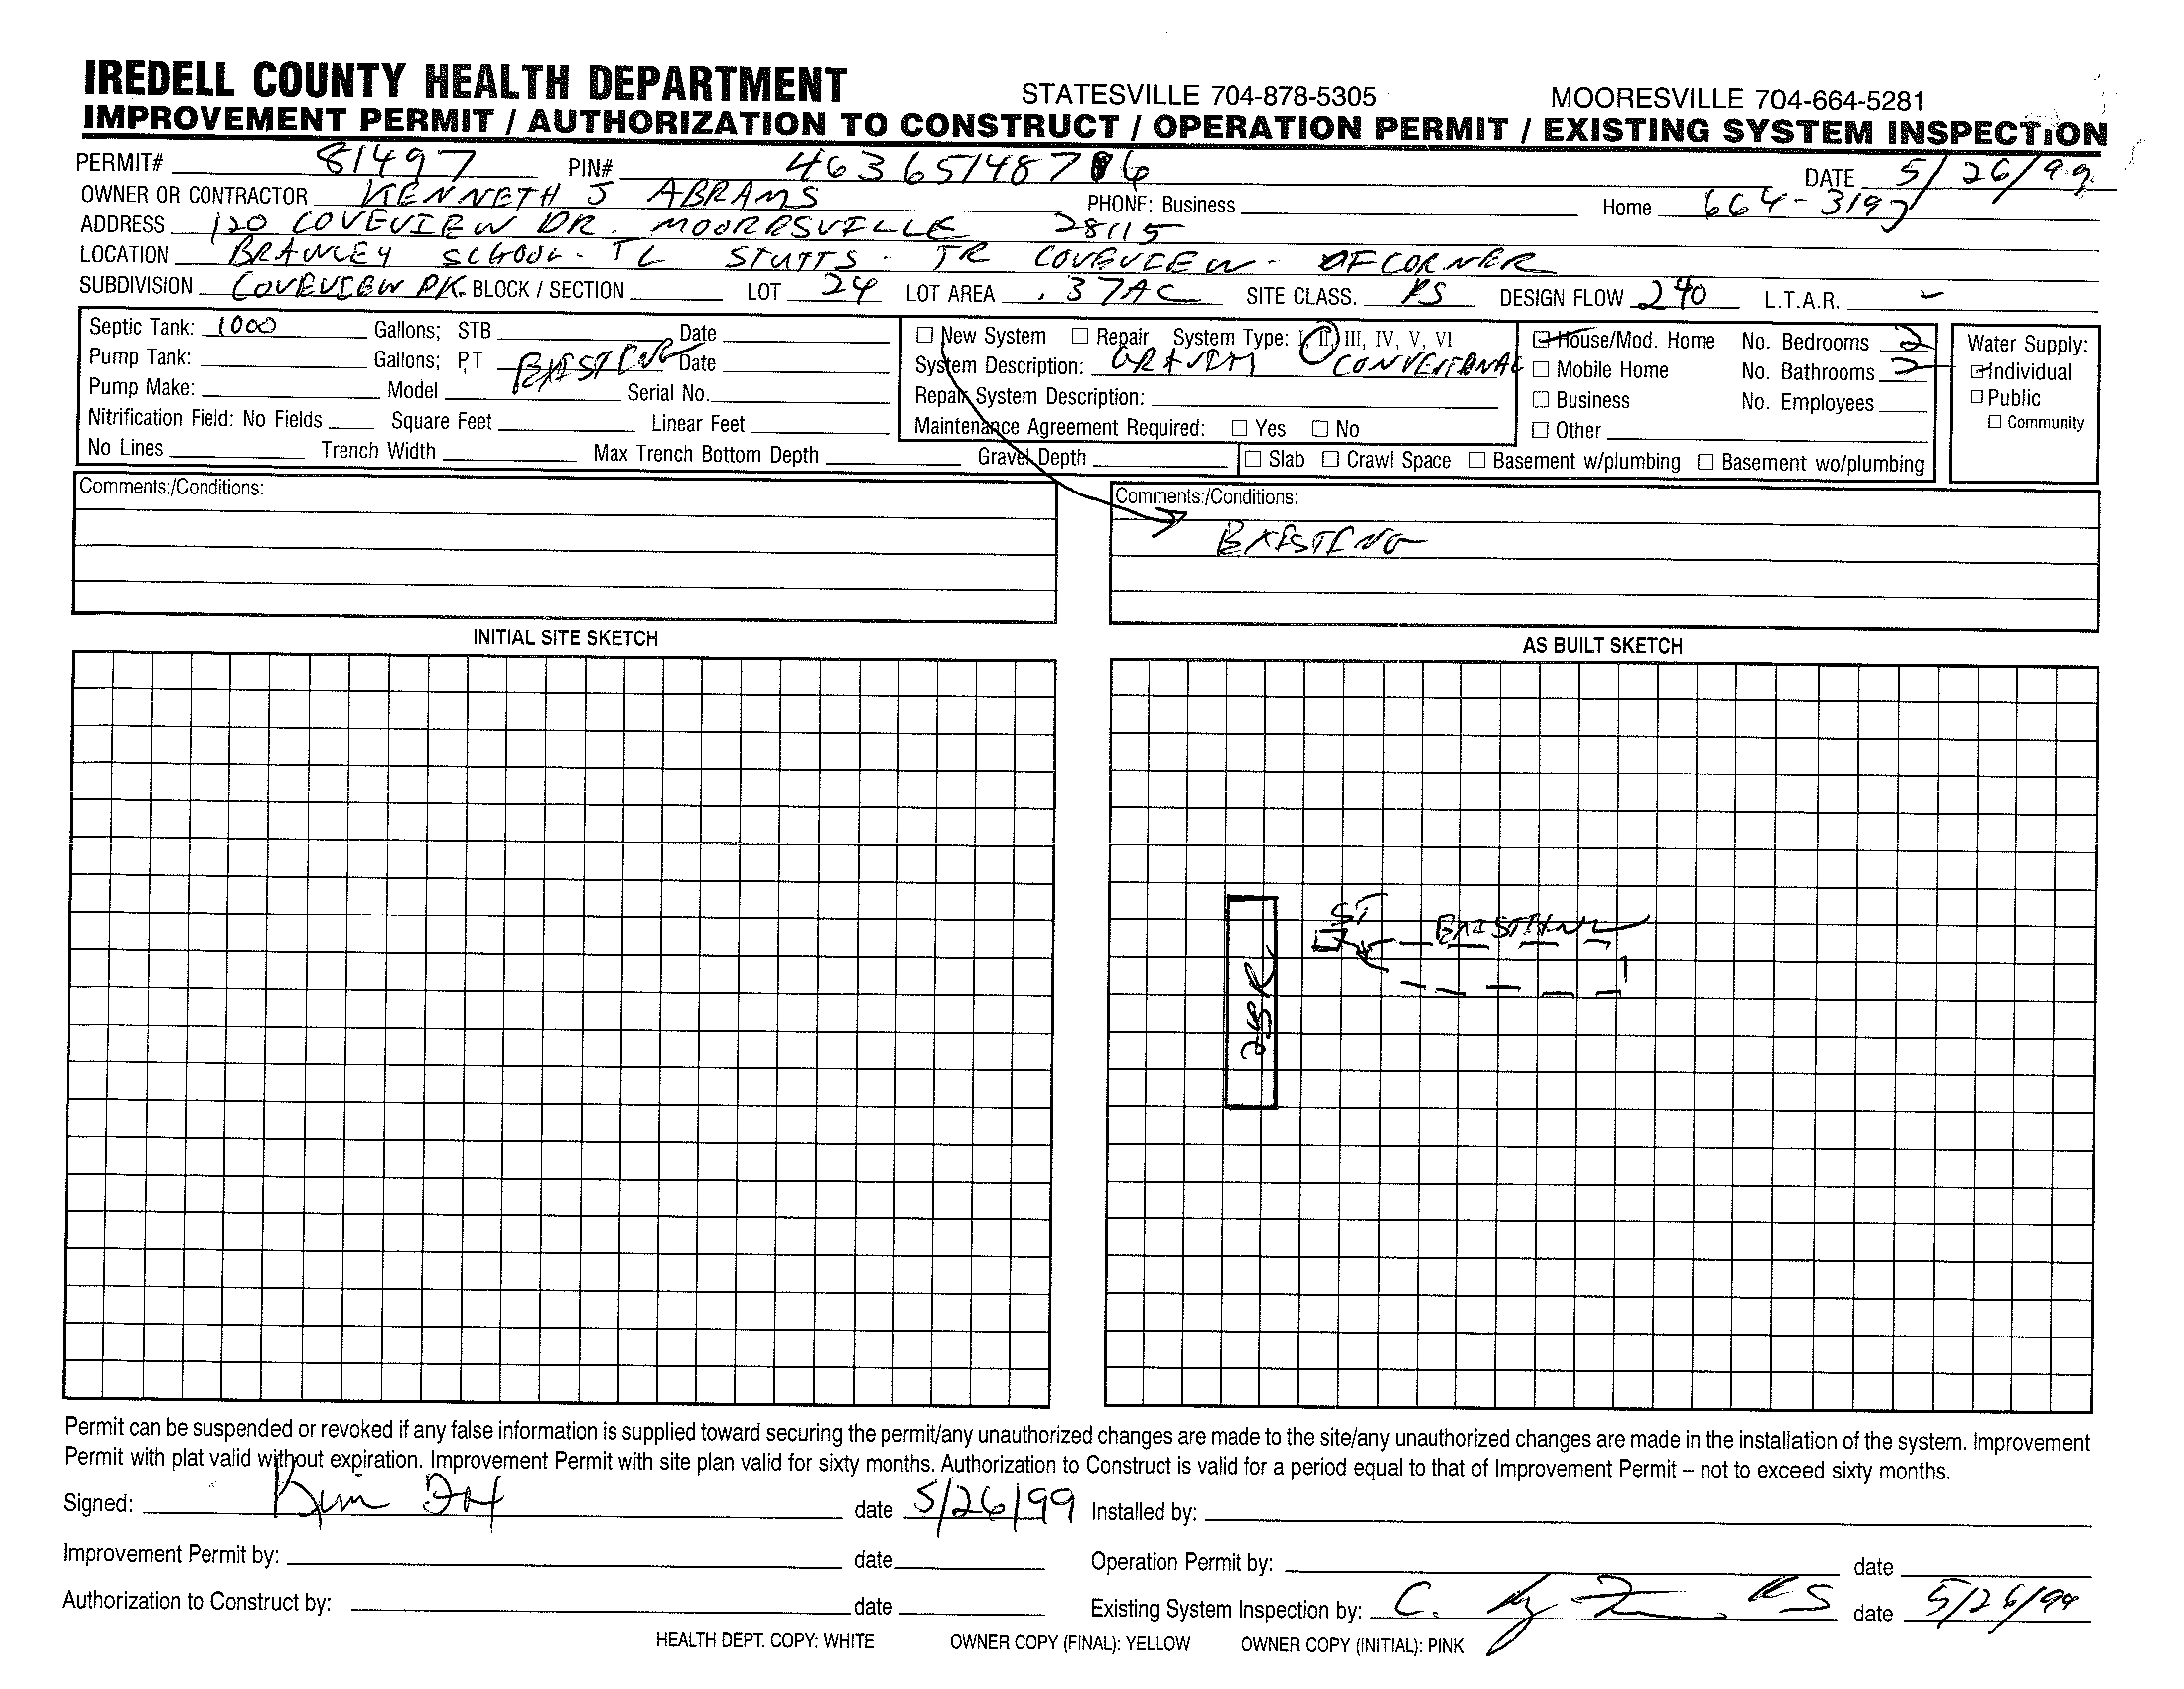 IREDELL COUNTY HEALTH DEPARTMENT STATESVILLE 704-878-5305 MOORESVILLE 704-664-5281
IMPROVEMENT PERMIT / AUTHORIZATION TO CONSTRUCT / OPERATION PERMIT / EXISTING SYSTEM INSPECTION
PERMIT# 81497 PIN# DATE 5/26/99
OWNER OR CONTRACTOR KENNETH J ABRAMS PHONE: Business Home 664-3197
ADDRESS 120 COVEVIEW DR. MOORRSVILLE 28115
LOCATION BRAWLEY SCHOOL - TL STUTTS - TR COVEVIEW - CORNER
SUBDIVISION COVEVIEW PK. BLOCK / SECTION LOT 24 LOT AREA .37AC SITE CLASS. PS DESIGN FLOW 240 L.T.A.R. -
Septic Tank: 1000 Gallons; STB Date
Pump Tank: Gallons; PT EXISTING Date
Pump Make: Model Serial No.
Nitrification Field: No Fields Square Feet Linear Feet
No Lines Trench Width Max Trench Bottom Depth Gravel Depth
New System Repair System Type: I, II, III, IV, V, VI
System Description: GRAVITY CONVENTIONAL
Repair System Description:
Maintenance Agreement Required: Yes No
Slab Crawl Space Basement w/plumbing Basement wo/plumbing
House/Mod. Home No. Bedrooms 2
Mobile Home No. Bathrooms 2
Business No. Employees
Other
Water Supply:
Individual
Public
Community
Comments:/Conditions:
Comments:/Conditions:
EXISTING
INITIAL SITE SKETCH
AS BUILT SKETCH
ST
EXISTING
2BR
Permit can be suspended or revoked if any false information is supplied toward securing the permit/any unauthorized changes are made to the site/any unauthorized changes are made in the installation of the system. Improvement
Permit with plat valid without expiration. Improvement Permit with site plan valid for sixty months. Authorization to Construct is valid for a period equal to that of Improvement Permit – not to exceed sixty months.
Signed: Kim date 5/26/99 Installed by:
Improvement Permit by: date Operation Permit by: date
Authorization to Construct by: date Existing System Inspection by: C. RS date 5/26/99
HEALTH DEPT. COPY: WHITE OWNER COPY (FINAL): YELLOW OWNER COPY (INITIAL): PINK